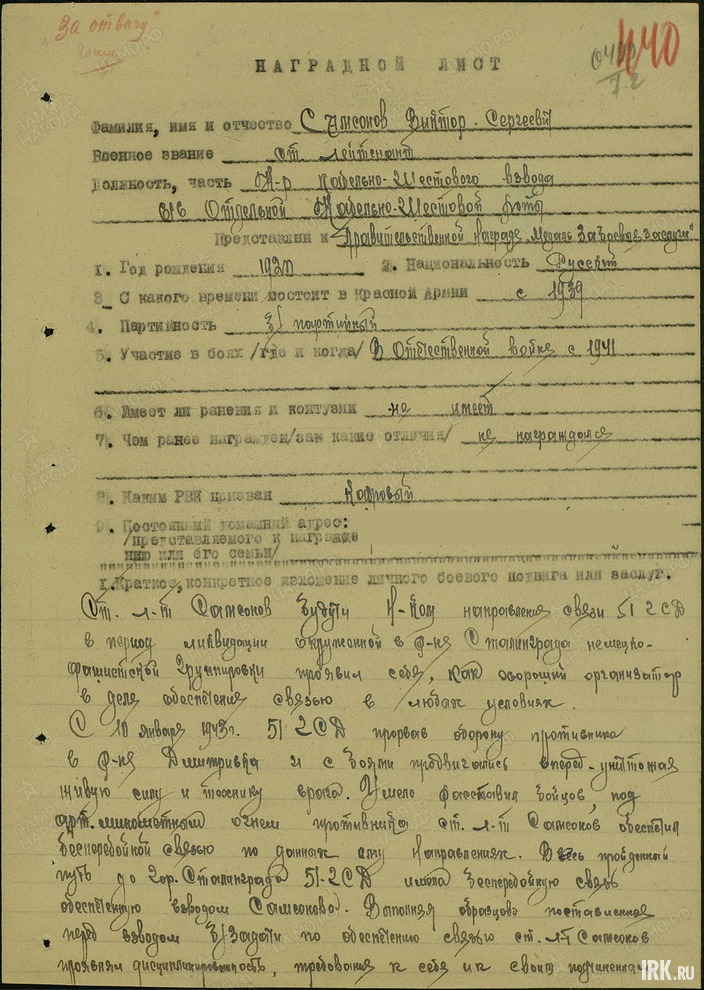 "За отвагу"
440
НАГРАДНОЙ ЛИСТ
Фамилия, имя и отчество Самсонов Виктор Сергеевич
Военное звание ст. лейтенант
Должность, часть К-р Кабельно-Шестового взвода
Отдельной Кабельно-Шестовой роты
Представлен к Правительственной награде Медаль "За боевые заслуги"
1. Год рождения 1920 2. Национальность Русский
3. С какого времени состоит в Красной Армии с 1939
4. Партийность б/партийный
5. Участие в боях /где и когда/ В Отечественной войне с 1941
6. Имеет ли ранения и контузии не имеет
7. Чем ранее награжден/за какие отличия/ не награждался
8. Каким РВК призван Кадровый
9. Постоянный домашний адрес:
/представляемого к награде
нию или его семьи/
I. Краткое, конкретное изложение личного боевого подвига или заслуг.
Ст. л-т Самсонов будучи н-ком направления связи 51 г СД
в период ликвидации окруженной в р-не Сталинграда немецко-
фашистской группировки проявил себя, как хороший организатор
в деле обеспечения связью в любых условиях.
С 10 января 1943 г. 51 г СД прорвав оборону противника
в р-не Дмитривка и с боями продвигались вперед уничтожая
живую силу и технику врага. Умело расставив бойцов, под
арт. минометным огнем противника ст. л-т Самсонов обеспечил
бесперебойной связью по данным ему направлениях. Весь пройденный
путь до гор. Сталинграда 51 г СД имела бесперебойную связь
обеспеченную взводом Самсонова. Выполняя образцово поставленные
перед взводом б/задачи по обеспечению связью ст. л-т Самсонов
проявлял дисциплинированность, требования к себе и к своим подчиненным
IRK.ru